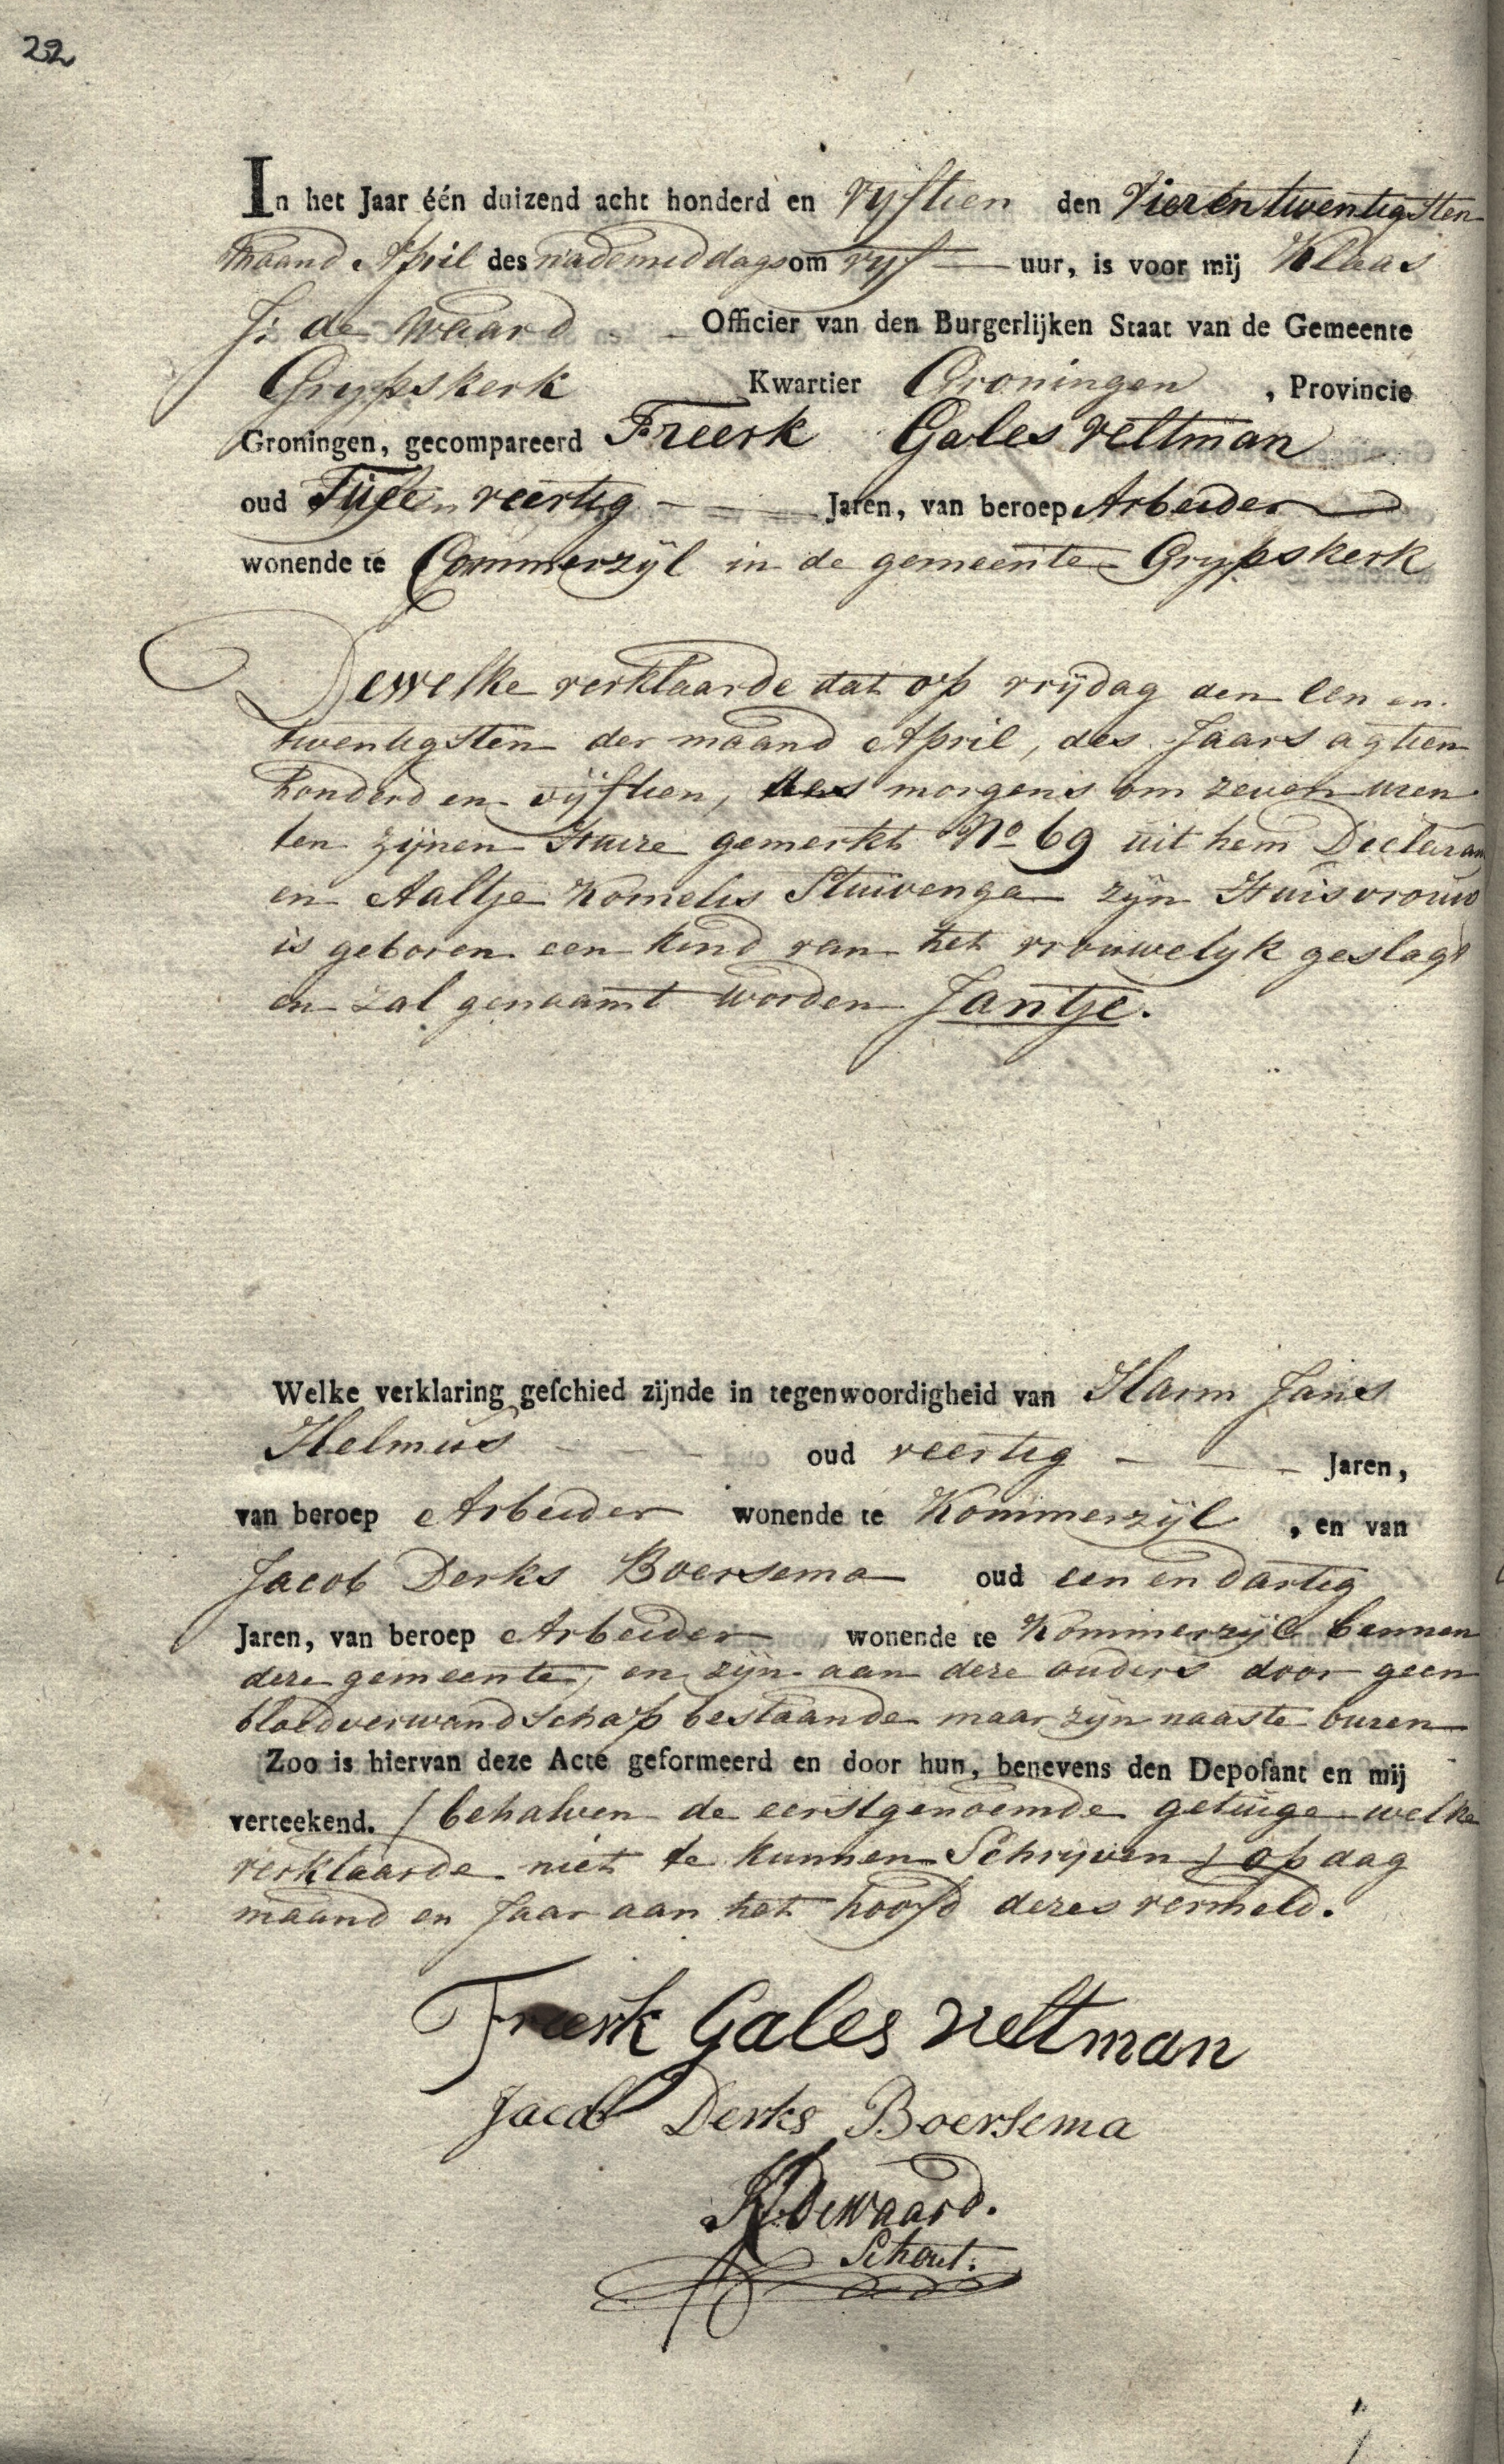 22
In het Jaar één duizend acht honderd en vyftien den vier en twentigsten
maand April des nademiddags om vyf uur, is voor mij Klaas
J: de Waard Officier van den Burgerlijken Staat van de Gemeente
Grypskerk Kwartier Groningen, Provincie
Groningen, gecompareerd Freerk Gales veltman
oud veertig Jaren, van beroep Arbeider
wonende te Commerzijl in de gemeente Grypskerk
Dewelke verklaarde dat op vrijdag den een en
twentigsten der maand April, des Jaars agtien
honderd en vijftien, des morgens om zeven uren
ten zijnen Huize gemerkt No 69 uit hem Declaran
en Aaltje Kornelis Stuivenga zijn Huisvrouw
is geboren een kind van het vrouwelyk geslagt
en zal genaamt worden Jantje.
Welke verklaring geschied zijnde in tegenwoordigheid van Harm Jans
Helmus oud veertig Jaren,
van beroep Arbeider wonende te Kommerzijl, en van
Jacob Derks Boersema oud een en dartig
Jaren, van beroep Arbeider wonende te Kommerzijl bennen
deze gemeente, en zijn aan deze ouders door geen
bloedverwandschap bestaande maar zijn naaste buren
Zoo is hiervan deze Acte geformeerd en door hun, benevens den Deposant en mij
verteekend. (behalven de eerstgenoemde getuige welke
verklaarde niet te kunnen Schrijven) op dag
maand en Jaar aan het hoofd dezes vermeld.
Freerk Gales veltman
Jacob Derks Boersema
KJDeWaard.
Schout.